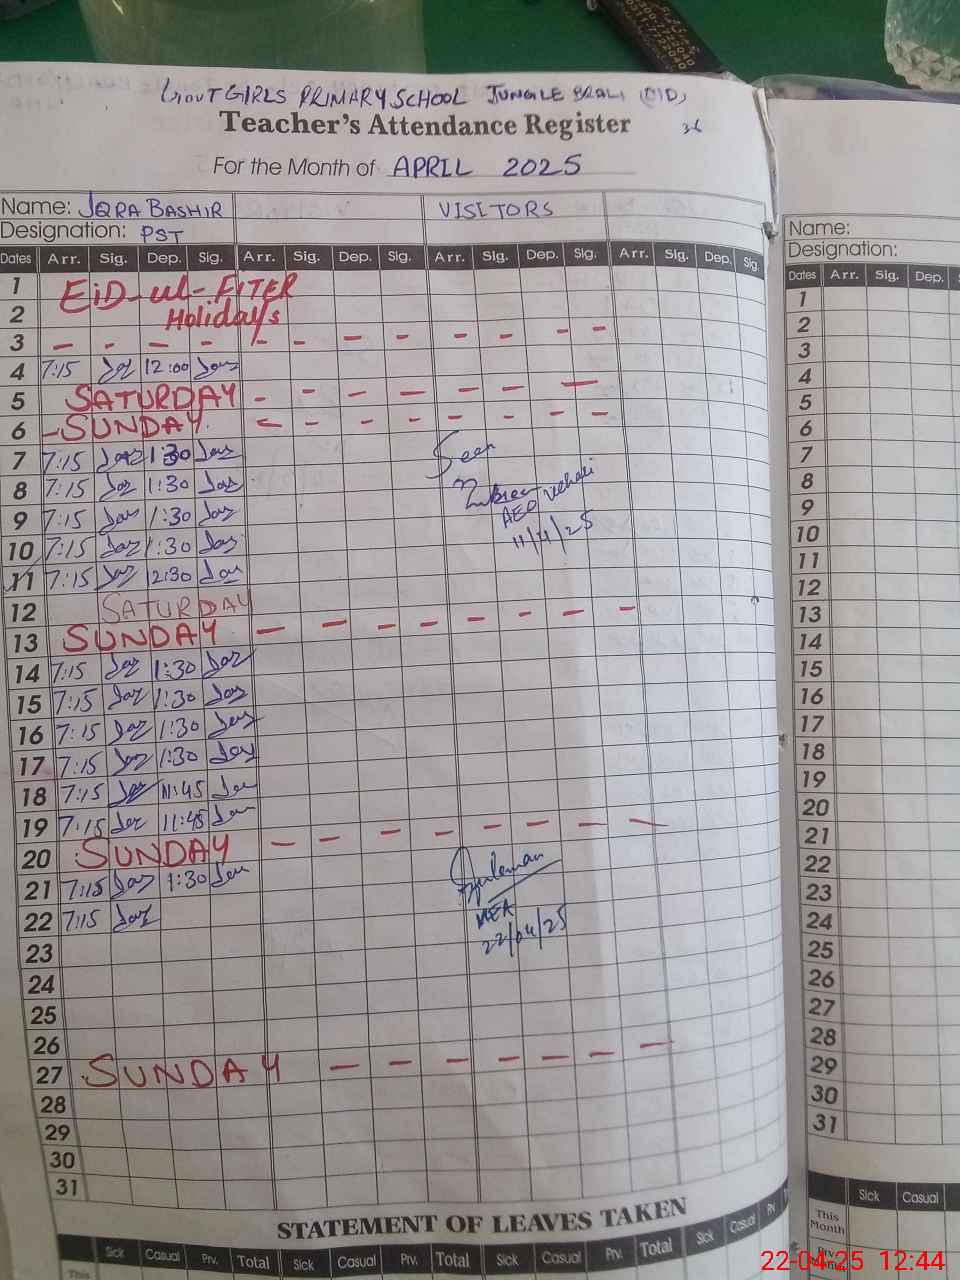 GovT GIRLS PRIMARY SCHOOL JUNGLE BRALI (OLD)
Teacher's Attendance Register 36
For the Month of APRIL 2025
Name: IQRA BASHIR VISITORS
Designation: PST
Dates Arr. Sig. Dep. Sig. Arr. Sig. Dep. Sig. Arr. Sig. Dep. Sig. Arr. Sig. Dep. Sig.
1 EiD-ul-FITER
2 Holidays
3 - - - - - - - - - - - -
4 7:15 12:00
5 SATURDAY - - - - - - -
6 -SUNDAY. - - - - - - - -
7 7:15 1:30 Seen
8 7:15 1:30
9 7:15 1:30 AEO Vehari
10 7:15 1:30 11/4/25
11 7:15 12:30
12 SATURDAY
13 SUNDAY - - - - - - - -
14 7:15 1:30
15 7:15 1:30
16 7:15 1:30
17 7:15 1:30
18 7:15 11:45
19 7:15 11:45
20 SUNDAY - - - - - - - -
21 7:15 1:30
22 7:15 MEA
23 22/04/25
24
25
26
27 SUNDAY - - - - - - -
28
29
30
31
STATEMENT OF LEAVES TAKEN
Sick Casual Prv. Total Sick Casual Prv. Total Sick Casual Prv. Total Sick Casual Prv
This
Name:
Designation:
Dates Arr. Sig. Dep.
1
2
3
4
5
6
7
8
9
10
11
12
13
14
15
16
17
18
19
20
21
22
23
24
25
26
27
28
29
30
31
Sick Casual
This
Month
22-04-25 12:44